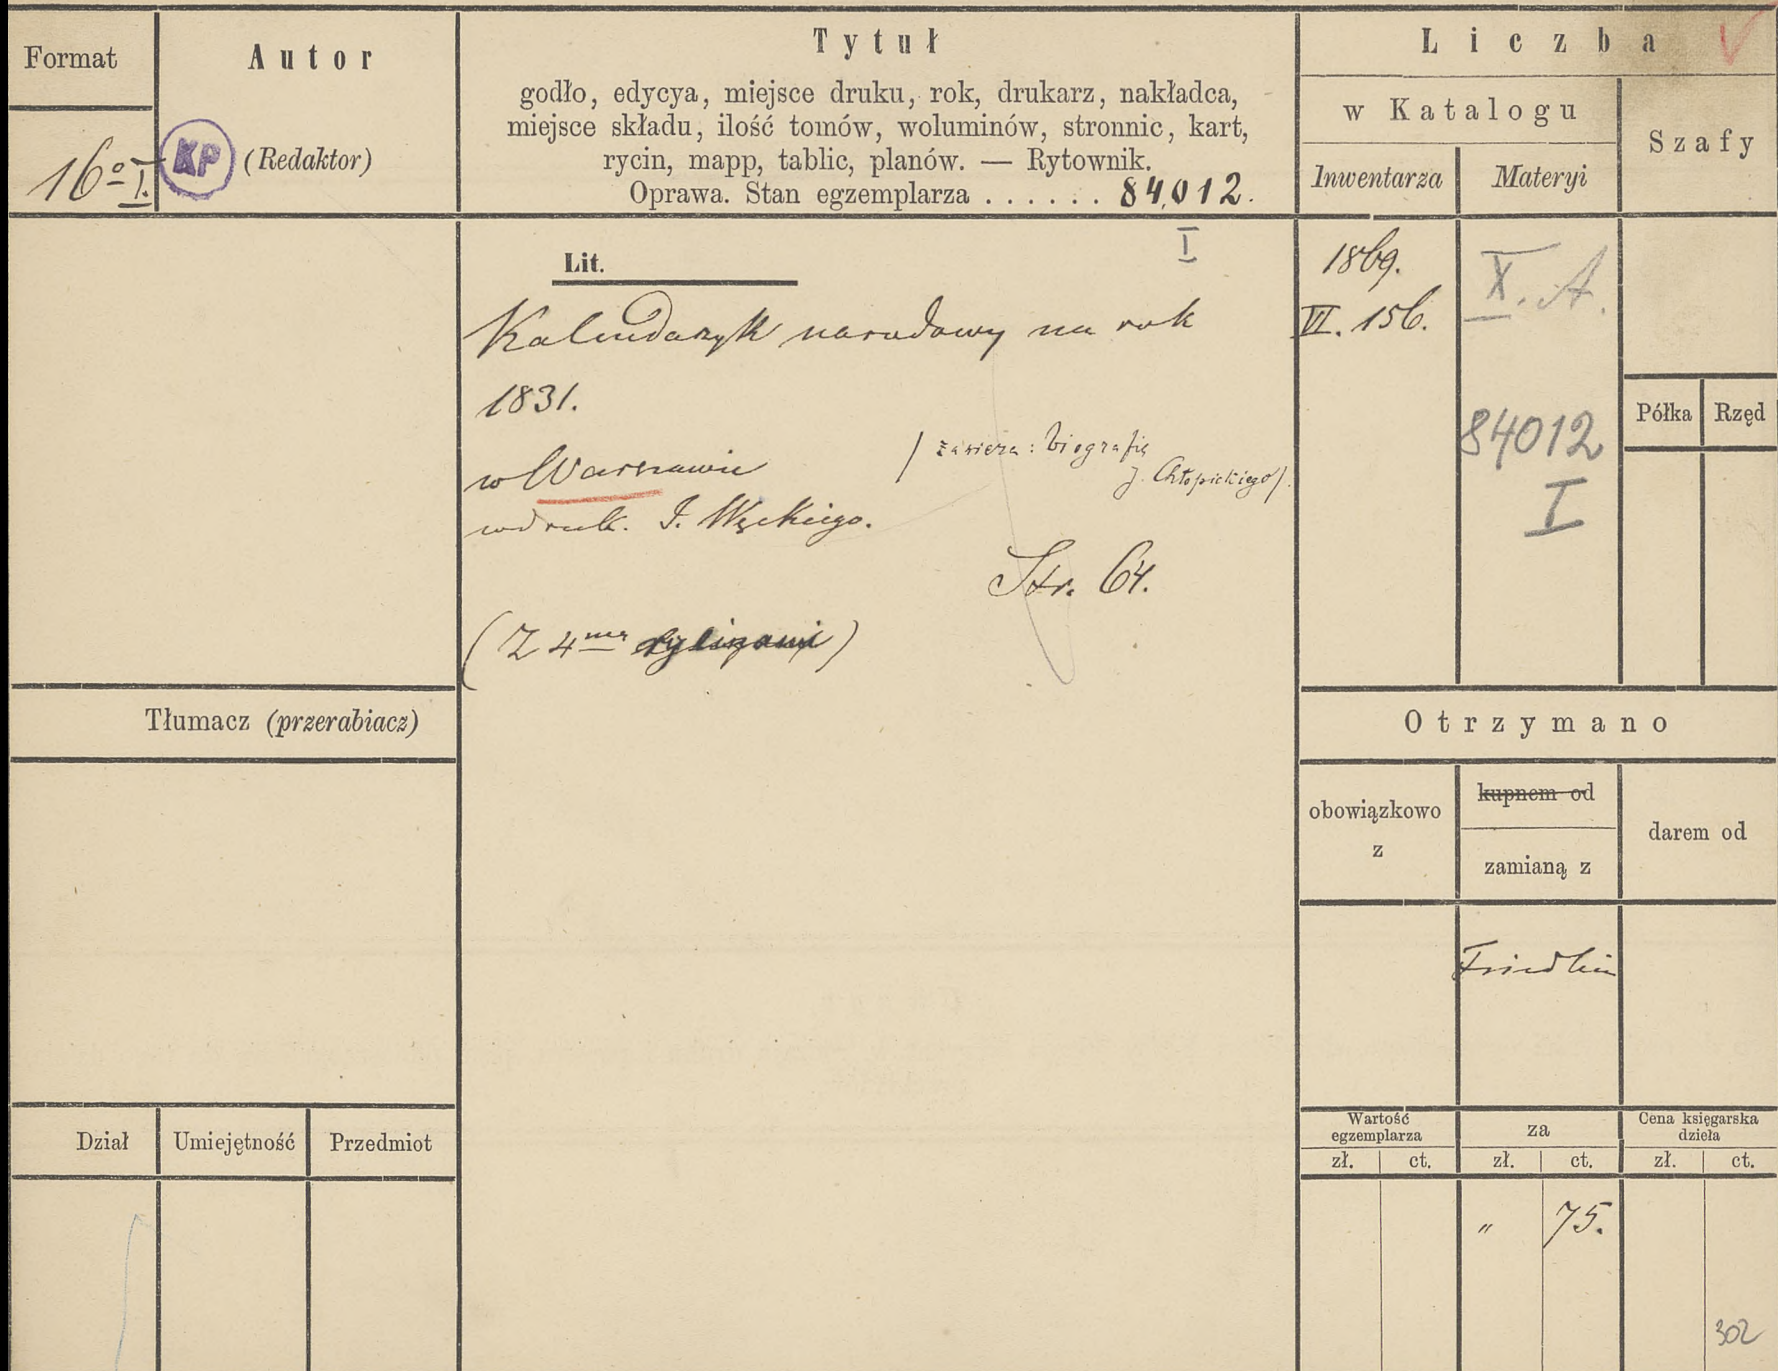 Format
16º I.
Autor
KP
(Redaktor)
Tytuł
godło, edycya, miejsce druku, rok, drukarz, nakładca,
miejsce składu, ilość tomów, woluminów, stronnic, kart,
rycin, mapp, tablic, planów. — Rytownik.
Oprawa. Stan egzemplarza . . . . . . 84,012.
I
Liczba
w Katalogu
Inwentarza
Materyi
Szafy
Lit.
Kalendarzyk narodowy na rok
1831.
w Warszawie
w druk. J. Węckiego.
/ zawiera: biografię
J. Chłopickiego/.
Str. 64.
(Z 4ma rycinami)
1869.
VI. 156.
X. A.
84012
I
Półka
Rzęd
Tłumacz (przerabiacz)
Otrzymano
obowiązkowo
z
kupnem od
zamianą z
darem od
Friedlein
Dział
Umiejętność
Przedmiot
Wartość
egzemplarza
zł.
ct.
za
zł.
ct.
Cena księgarska
dzieła
zł.
ct.
" 75.
302